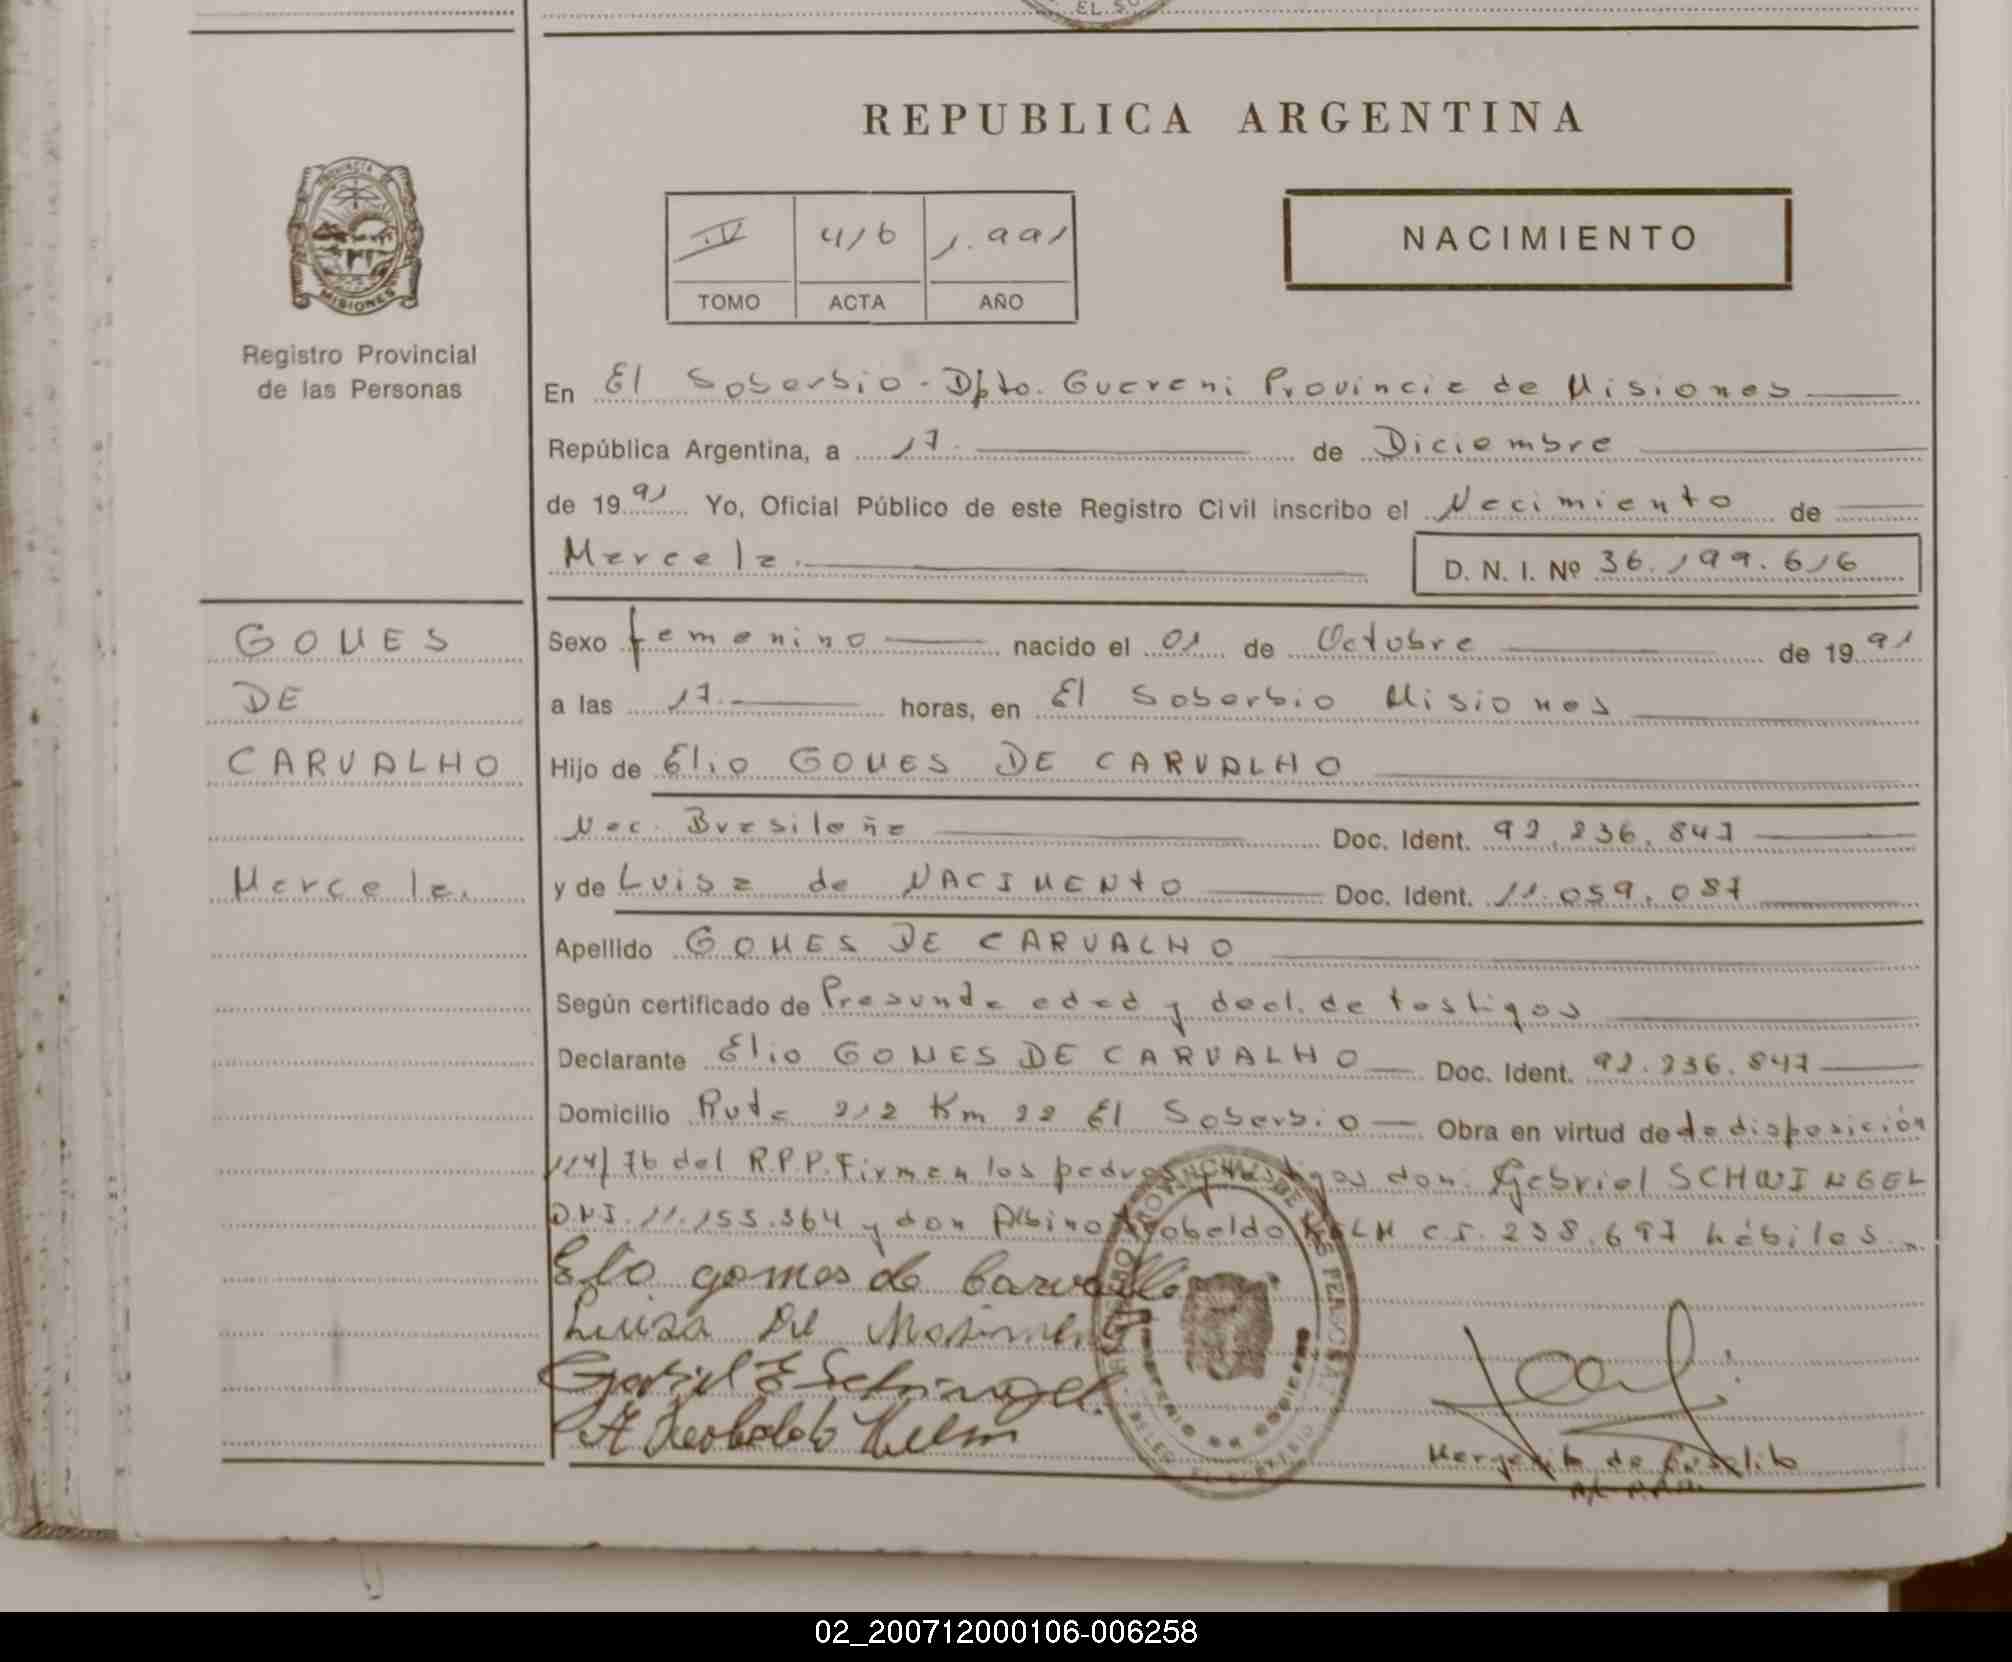 EL SO
REPUBLICA ARGENTINA
PROVINCIA DE
MISIONES
Registro Provincial
de las Personas
IV 416 1.991
TOMO ACTA AÑO
NACIMIENTO
En El Soberbio - Dpto. Guarani Provincia de Misiones
República Argentina, a 17. de Diciembre
de 1991 Yo, Oficial Público de este Registro Civil inscribo el Nacimiento de
Marcela. D. N. I. Nº 36.199.616
GOMES
DE
CARVALHO
Marcela.
Sexo femenino nacido el 01 de Octubre de 1991
a las 17. horas, en El Soberbio Misiones
Hijo de Elio GOMES DE CARVALHO
Nac. Brasileña Doc. Ident. 92.236.847
y de Luisa de NACIMENTO Doc. Ident. 11.059.087
Apellido GOMES DE CARVALHO
Según certificado de Presunda edad y decl. de testigos
Declarante Elio GOMES DE CARVALHO Doc. Ident. 92.236.847
Domicilio Ruta 212 Km 22 El Soberbio Obra en virtud de de disposición
114/76 del R.P.P. Firman los padres y testigos don: Gabriel SCHWINGEL
D.N.I. 11.155.364 y don Albino Teobaldo HELM C.I. 238.697 hábiles.
Elio gomes de Carvalho
Luisa De
Gabriel E Schwingel
A Teobaldo Helm
Margarita de
02_200712000106-006258